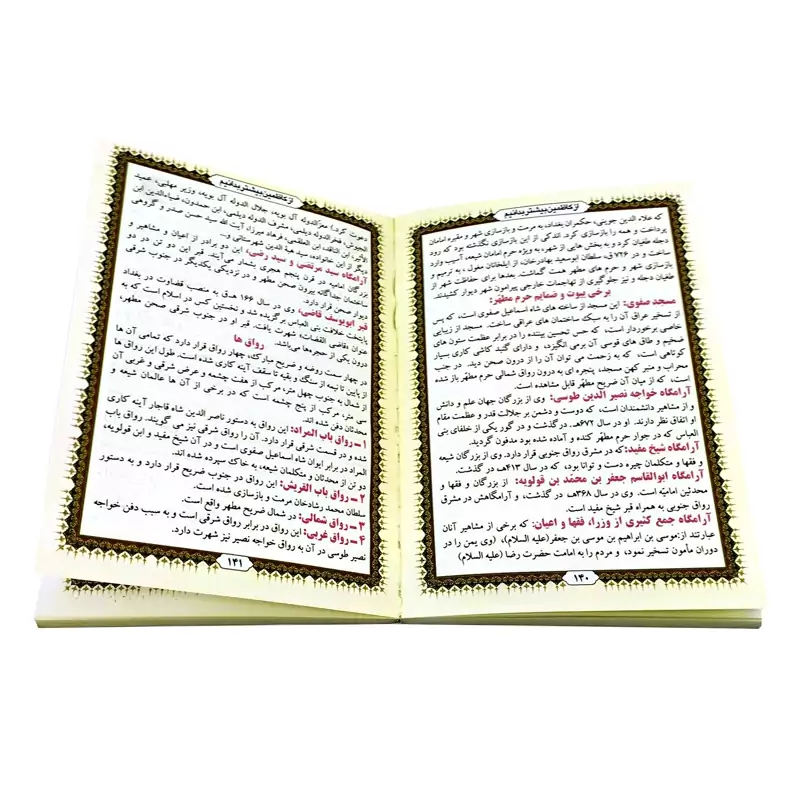 از کاظمین بیشتر بدانیم
که علاء الدین جوینی، حکمران بغداد، به مرمت و بازسازی شهر و مقبره امامان
پرداخت و همه را بازسازی کرد. اندکی از این بازسازی نگذشته بود که رود
دجله طغیان کرد و به بخش هایی از شهر، به ویژه حرم امامان شیعه، آسیب وارد
ساخت و در ۷۲۶ق، سلطان ابوسعید بهادرخان، از ایلخانان مغول، به ترمیم و
بازسازی شهر و حرم های مطهر همت گماشت. بعدها برای حفاظت شهر از
طغیان دجله و نیز جلوگیری از تهاجمات خارجی پیرامون شهر دیوار کشیدند.
برخی بیوت و ضمایم حرم مطهر:
مسجد صفوی: این مسجد از ساخته های شاه اسماعیل صفوی است، که پس
از تسخیر عراق آن را به سبک ساختمان های عراقی ساخت. مسجد از زیبایی
خاصی برخوردار است، که حس تحسین بیننده را در برابر عظمت ستون های
ضخیم و طاق های قوسی آن برمی انگیزد، و دارای گنبد کاشی کاری بسیار
کوتاهی است، که به زحمت می توان آن را از درون صحن دید. در جنب
محراب و منبر کهن مسجد، پنجره ای به درون رواق شمالی حرم مطهّر باز شده
است، که از میان آن ضریح مطهّر قابل مشاهده است.
آرامگاه خواجه نصیر الدین طوسی: وی از بزرگان جهان علم و دانش
و از مشاهیر دانشمندان است، که دوست و دشمن بر جلالت قدر و عظمت مقام
او اتفاق نظر دارند. او در سال ۶۷۲هـ. درگذشت و در گور یکی از خلفای بنی
العباس که در جوار حرم مطهّر کنده و آماده شده بود مدفون گردید.
آرامگاه شیخ مفید: که در مشرق رواق جنوبی قرار دارد. وی از بزرگان شیعه
و فقها و متکلمان چیره دست و توانا بود، که در سال ۴۱۳هـ ق درگذشت.
آرامگاه ابوالقاسم جعفر بن محمّد بن قولویه: از بزرگان و فقها و
محدثین امامیّه است. وی در سال ۳۶۸هـ ق، در گذشت، و آرامگاهش در مشرق
رواق جنوبی به همراه قبر شیخ مفید است.
آرامگاه جمع کثیری از وزرا، فقها و اعیان: که برخی از مشاهیر آنان
عبارتند از:موسی بن ابراهیم بن موسی بن جعفر(علیه السلام)، (وی یمن را در
دوران مأمون تسخیر نمود، و مردم را به امامت حضرت رضا (علیه السلام)
۱۴۰
از کاظمین بیشتر بدانیم
دعوت کرد.) معزّالدوله آل بویه، جلال الدوله آل بویه، وزیر مهلبی، عمید
الجیوش، فخرالدوله دیلمی، شرف الدوله دیلمی، ابن حمدون، ضیاءالدین ابن
الأثیر، ابن الناقد، ابن العلقمی، فرهاد میرزا، آیت الله سید حسن صدر و گروهی
دیگر از این خانواده، سید هبة الدین شهرستانی و...
آرامگاه سید مرتضی و سید رضی، این دو برادر از اعیان و مشاهیر و
بزرگان امامیه در قرن پنجم هجری بشمار می آیند. قبر این دو تن در دو
ساختمان جداگانه بیرون صحن مطهر، و در نزدیکی یکدیگر در جنوب شرقی
دیوار صحن قرار دارد.
قبر ابویوسف قاضی، وی در سال ۱۶۶ هـ.ق به منصب قضاوت در بغداد
پایتخت خلافت بنی العباس برگزیده شد و نخستین کس در اسلام است که به
عنوان «قاضی القضات» شهرت یافت. قبر او در جنوب شرقی صحن مطهر،
درون یکی از حجره‌ها می‌باشد.
رواق ها
در چهار سمت روضه و ضریح مبارک، چهار رواق قرار دارد که تمامی آن ها
از پایین تا نیمه از سنگ و بقیه تا سقف آینه کاری شده است. طول این رواق ها
از شمال به جنوب چهل متر، مرکب از هفت چشمه و عرض شرقی و غربی آن
سی متر، مرکب از پنج چشمه است که در برخی از آن ها عالمان شیعه و
محدثان دفن شده اند.
۱ـ رواق باب المراد: این رواق به دستور ناصر الدین شاه قاجار آینه کاری
شده و در قسمت شرقی قرار دارد. آن را رواق شرقی نیز می گویند. رواق باب
المراد در برابر ایوان شاه اسماعیل صفوی است و در آن شیخ مفید و ابن قولویه،
دو تن از محدثان و متکلمان شیعه، به خاک سپرده شده اند.
۲ـ رواق باب القریش: این رواق در جنوب ضریح قرار دارد و به دستور
سلطان محمد رشادخان مرمت و بازسازی شده است.
۳ـ رواق شمالی: در شمال ضریح مطهر واقع است.
۴ـ رواق غربی: این رواق در برابر رواق شرقی است و به سبب دفن خواجه
نصیر طوسی در آن به رواق خواجه نصیر نیز شهرت دارد.
۱۴۱